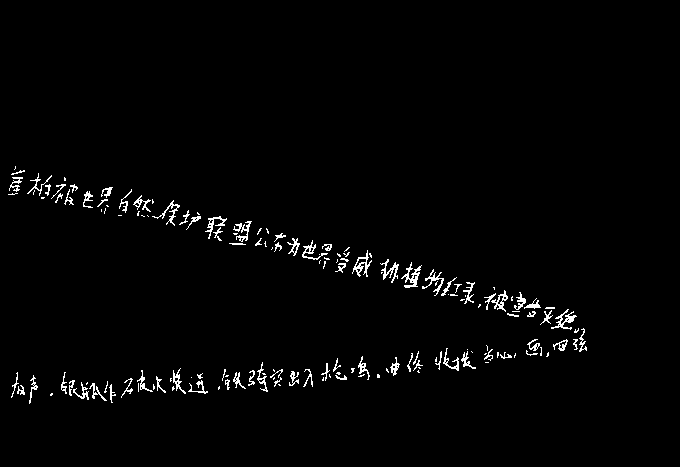 崖柏被世界自然保护联盟公布为世界受威胁植物红录,被宣告灭绝。
有声。银瓶乍破水浆迸,铁骑突出刀枪鸣。曲终收拨当心画,四弦